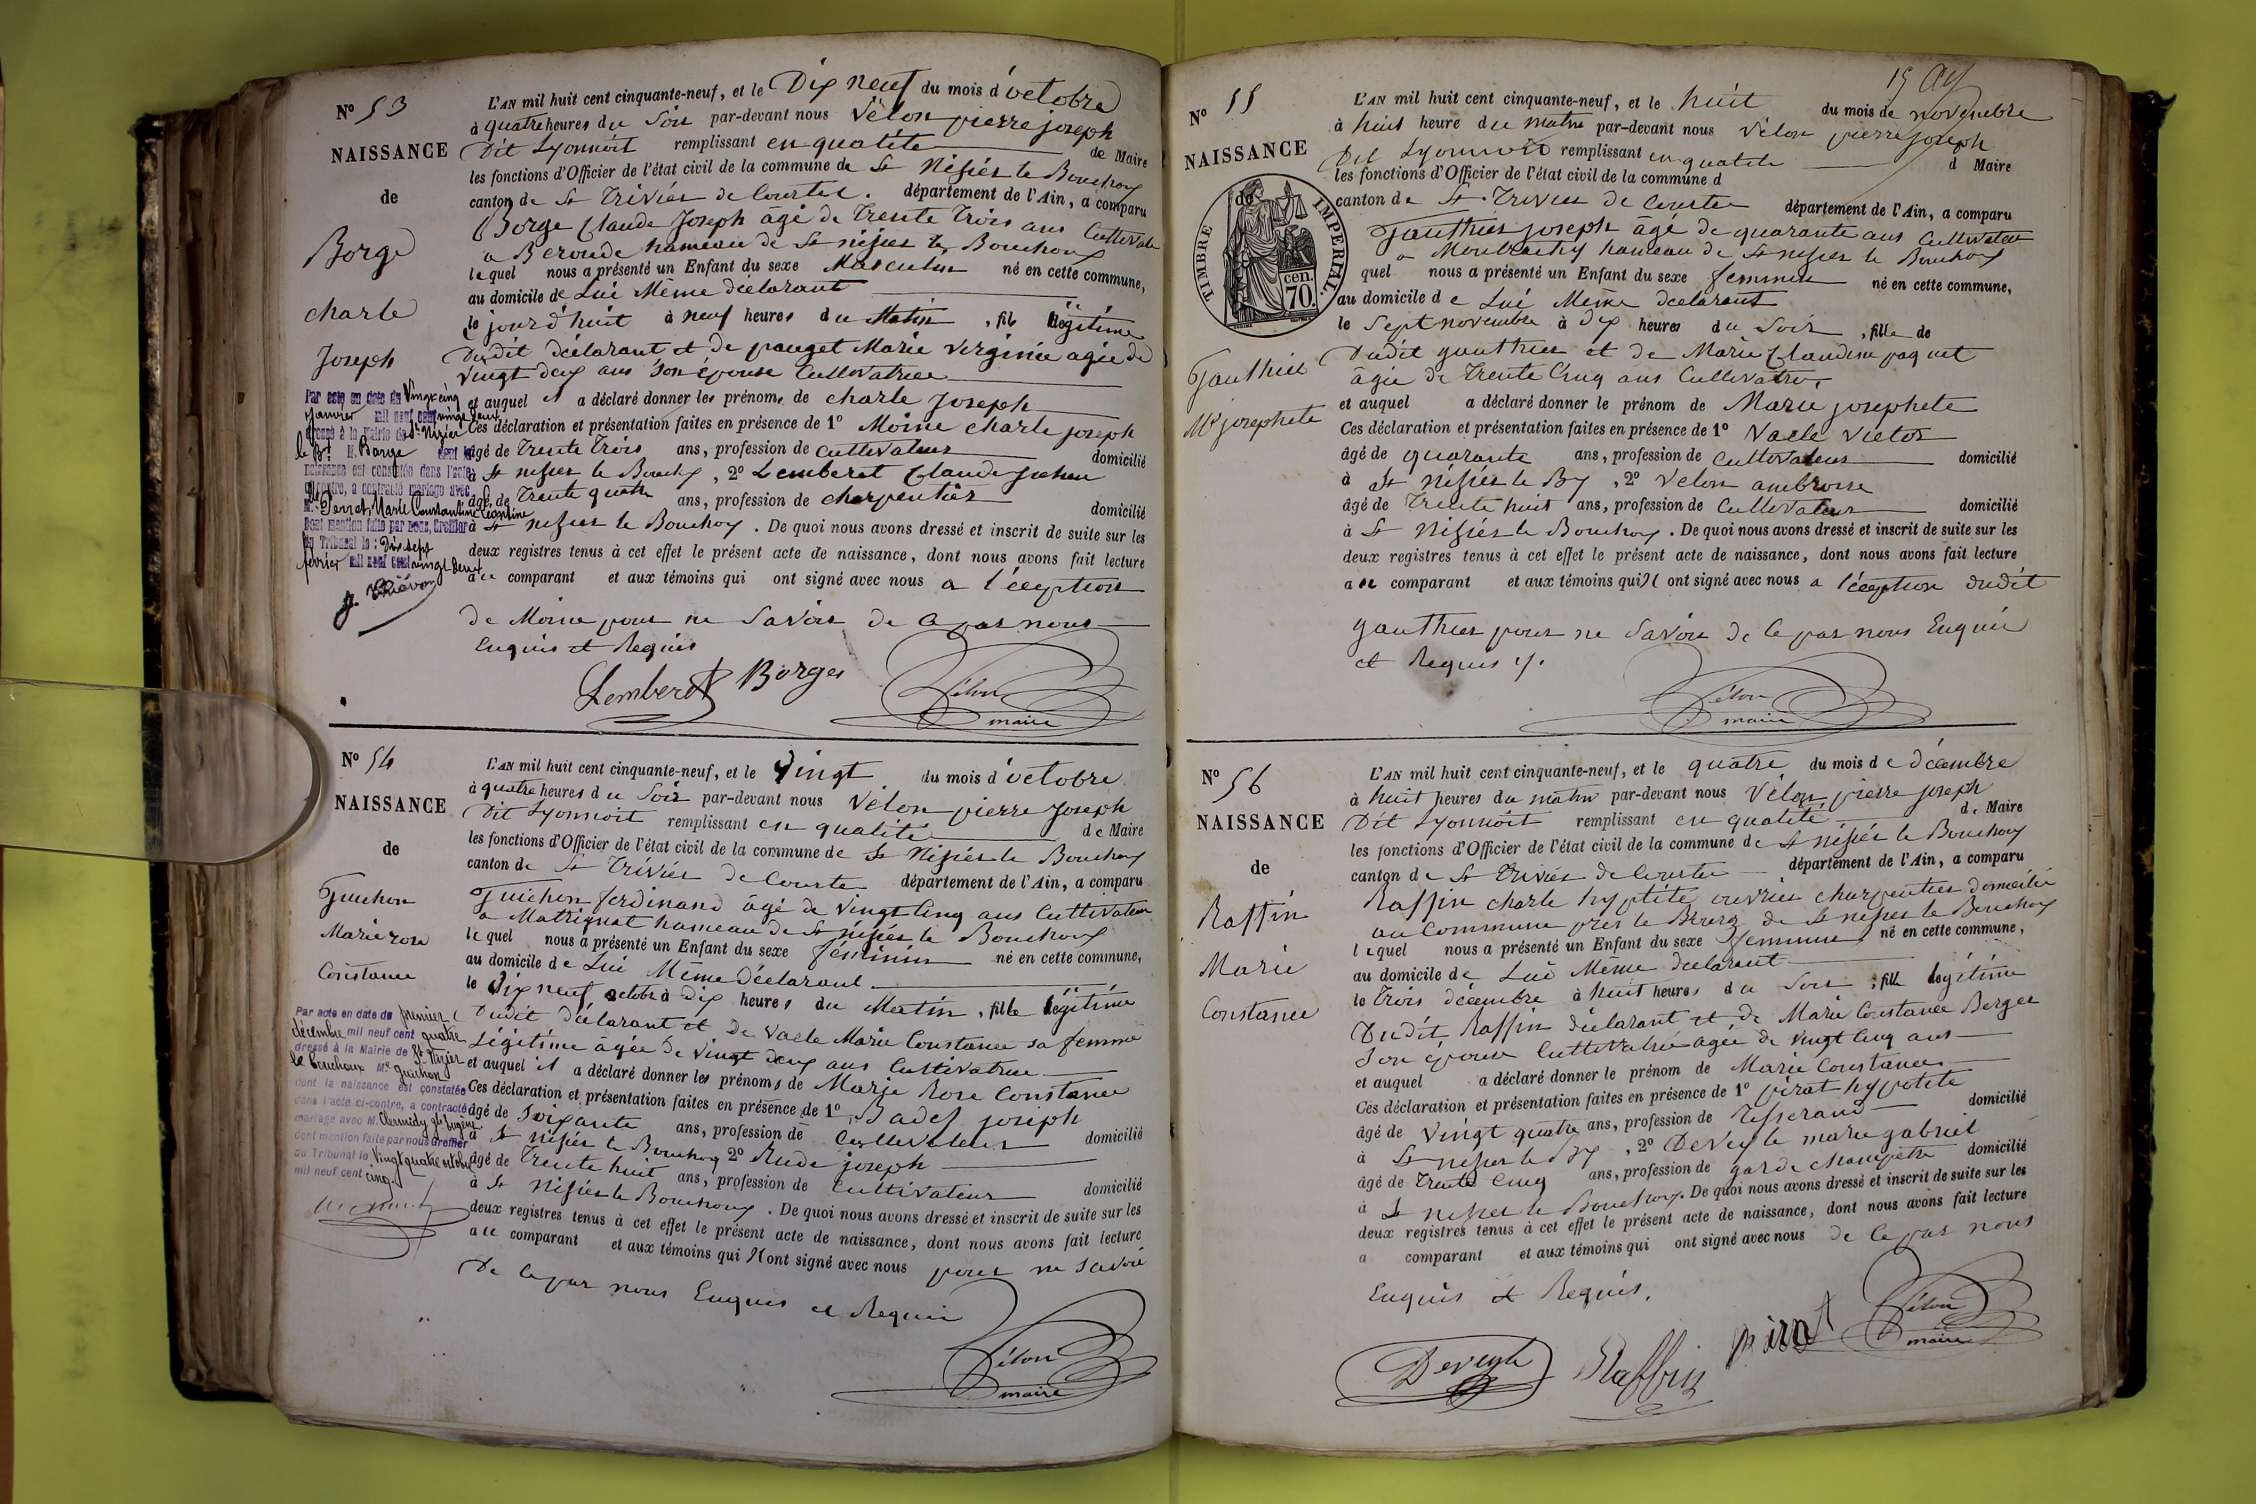 N° 53
NAISSANCE
de
Borge
charle
Joseph
Par acte en date du Vingt cinq
janvier mil neuf cent vingt deux
dressé à la Mairie de St Nizier
le Bt M. Borge dont la
naissance est constatée dans l'acte
ci-contre, a contracté mariage avec
Mlle Perret, Marie Constantine Léontine
Dont mention faite par nous, Greffier
du Tribunal le : Dix sept
février mil neuf cent vingt deux
L'AN mil huit cent cinquante-neuf, et le Dix neuf du mois d'octobre
à quatre heures du Soir par-devant nous Vélon pierre joseph
Dit Lyonnoit remplissant en qualité de Maire
les fonctions d'Officier de l'état civil de la commune de St Nisiér le Bouchoy
canton de St Triviér de Courtes. département de l'Ain, a comparu
Borge Claude Joseph âgé de Trente Trois ans Cultivate
a Beroude hameau de St nisier le Bouchoux
lequel nous a présenté un Enfant du sexe Masculin né en cette commune,
au domicile de Lui Même déclarant
le jour d'huit à neuf heures du Matin, fils légitime
Dudit déclarant et de pauget Marie Virginie agée de
Vingt deux ans Son épouse Cultivatrice
et auquel il a déclaré donner les prénoms de charle Joseph
Ces déclaration et présentation faites en présence de 1° Moine charle joseph
âgé de Trente Trois ans, profession de cultivateur domicilié
à St nisier le Bouchoy, 2° Lemberet Claude
âgé de Trente quatre ans, profession de charpentier domicilié
à St nisier le Bouchoy. De quoi nous avons dressé et inscrit de suite sur les
deux registres tenus à cet effet le présent acte de naissance, dont nous avons fait lecture
au comparant et aux témoins qui ont signé avec nous a l'éception
de Moine pour ne Savoir de Ce par nous
Enquis et Requis
Lemberet Borges Vélon
maire
N° 54
NAISSANCE
de
Guichon
Marie rose
Constance
Par acte en date du premier
décembre mil neuf cent quatre
dressé à la Mairie de St Nizier
le Bouchoux Mlle Guichon
dont la naissance est constatée
dans l'acte ci-contre, a contracté
mariage avec M.
dont mention faite par nous Greffier
du Tribunal le Vingt quatre octobre
mil neuf cent cinq
L'AN mil huit cent cinquante-neuf, et le Vingt du mois d'octobre
à quatre heures du Soir par-devant nous Vélon pierre Joseph
Dit Lyonnoit remplissant en qualité de Maire
les fonctions d'Officier de l'état civil de la commune de St Nisiér le Bouchoy
canton de St Triviér de Courtes département de l'Ain, a comparu
Guichon ferdinand âgé de Vingt Cinq ans Cultivateur
a Matrignat hameau de St nisiés le Bouchoux
lequel nous a présenté un Enfant du sexe féminin né en cette commune,
au domicile de Lui Même Déclarant
le Dix neuf octobre à dix heures du Matin, fille légitime
Dudit déclarant et De Vacle Marie Constance sa femme
Légitime âgée De Vingt deux ans Cultivatrice
et auquel il a déclaré donner les prénoms de Marie Rose Constance
Ces déclaration et présentation faites en présence de 1° Badel joseph
âgé de Soixante ans, profession de Cultivateur domicilié
à St nisiér le Bouchoy 2° Rude joseph
âgé de Trente huit ans, profession de Cultivateur domicilié
à St Nisiér le Bouchoux. De quoi nous avons dressé et inscrit de suite sur les
deux registres tenus à cet effet le présent acte de naissance, dont nous avons fait lecture
au comparant et aux témoins qui N ont signé avec nous pour ne Savoir
De Ce par nous Enquis et Requis
Vélon
maire
15
N° 55
NAISSANCE
de
TIMBRE IMPERIAL.
70. cen.
Gauthier
Mie josephete
L'AN mil huit cent cinquante-neuf, et le huit du mois de novembre
à huit heure du matin par-devant nous Vélon pierre joseph
Dit Lyonnoit remplissant en qualité d Maire
les fonctions d'Officier de l'état civil de la commune d
canton de St Trivier de Courtes département de l'Ain, a comparu
Gauthier joseph âgé de quarante ans Cultivateur
a Montrachy hameau de St nisier le Bouchoux
quel nous a présenté un Enfant du sexe feminin né en cette commune,
au domicile de Lui Même declarant
le Sept novembre à Dix heures du Soir, fille de
Dudit gauthier et de Marie Claudine paquet
âgée de Trente Cinq ans Cultivatrice
et auquel a déclaré donner le prénom de Marie josephete
Ces déclaration et présentation faites en présence de 1° Vacle Victor
âgé de quarante ans, profession de Cultivateur domicilié
à St Nisiér le By, 2° Velon ambroise
âgé de Trente huit ans, profession de Cultivateur domicilié
à St Nisiér le Bouchoy. De quoi nous avons dressé et inscrit de suite sur les
deux registres tenus à cet effet le présent acte de naissance, dont nous avons fait lecture
au comparant et aux témoins qui N ont signé avec nous a l'éception dudit
gauthier pour ne Savoir de Ce par nous Enquis
et Requis
Vélon
maire
N° 56
NAISSANCE
de
Raffin
Marie
Constance
L'AN mil huit cent cinquante-neuf, et le quatre du mois de décembre
à huit heures du matin par-devant nous Vélon pierre joseph
Dit Lyonnoit remplissant en qualité de Maire
les fonctions d'Officier de l'état civil de la commune de St nisiér le Bouchoy
canton de St Trivier de Courtes département de l'Ain, a comparu
Raffin charle hyptite ouvrier charpentier domicilié
au Commune près le Bourg de St nisier le Bouchoy
lequel nous a présenté un Enfant du sexe feminin né en cette commune,
au domicile de Lui Même declarant
le Trois décembre à huit heures du Soir, fille légitime
Dudit Raffin déclarant et de Marie Constance Berger
Son épouse Cultivatrice agée de Vingt Cinq ans
et auquel a déclaré donner le prénom de Marie Constance
Ces déclaration et présentation faites en présence de 1° pirat hypotite
âgé de Vingt quatre ans, profession de Tisserand domicilié
à St nisier le By, 2° Deveyle marie gabriel
âgé de Trente Cinq ans, profession de garde champêtre domicilié
à St nisier le Bouchoy. De quoi nous avons dressé et inscrit de suite sur les
deux registres tenus à cet effet le présent acte de naissance, dont nous avons fait lecture
a comparant et aux témoins qui ont signé avec nous de Ce par nous
Enquis et Requis.
Deveyle Raffin pirat Vélon
maire